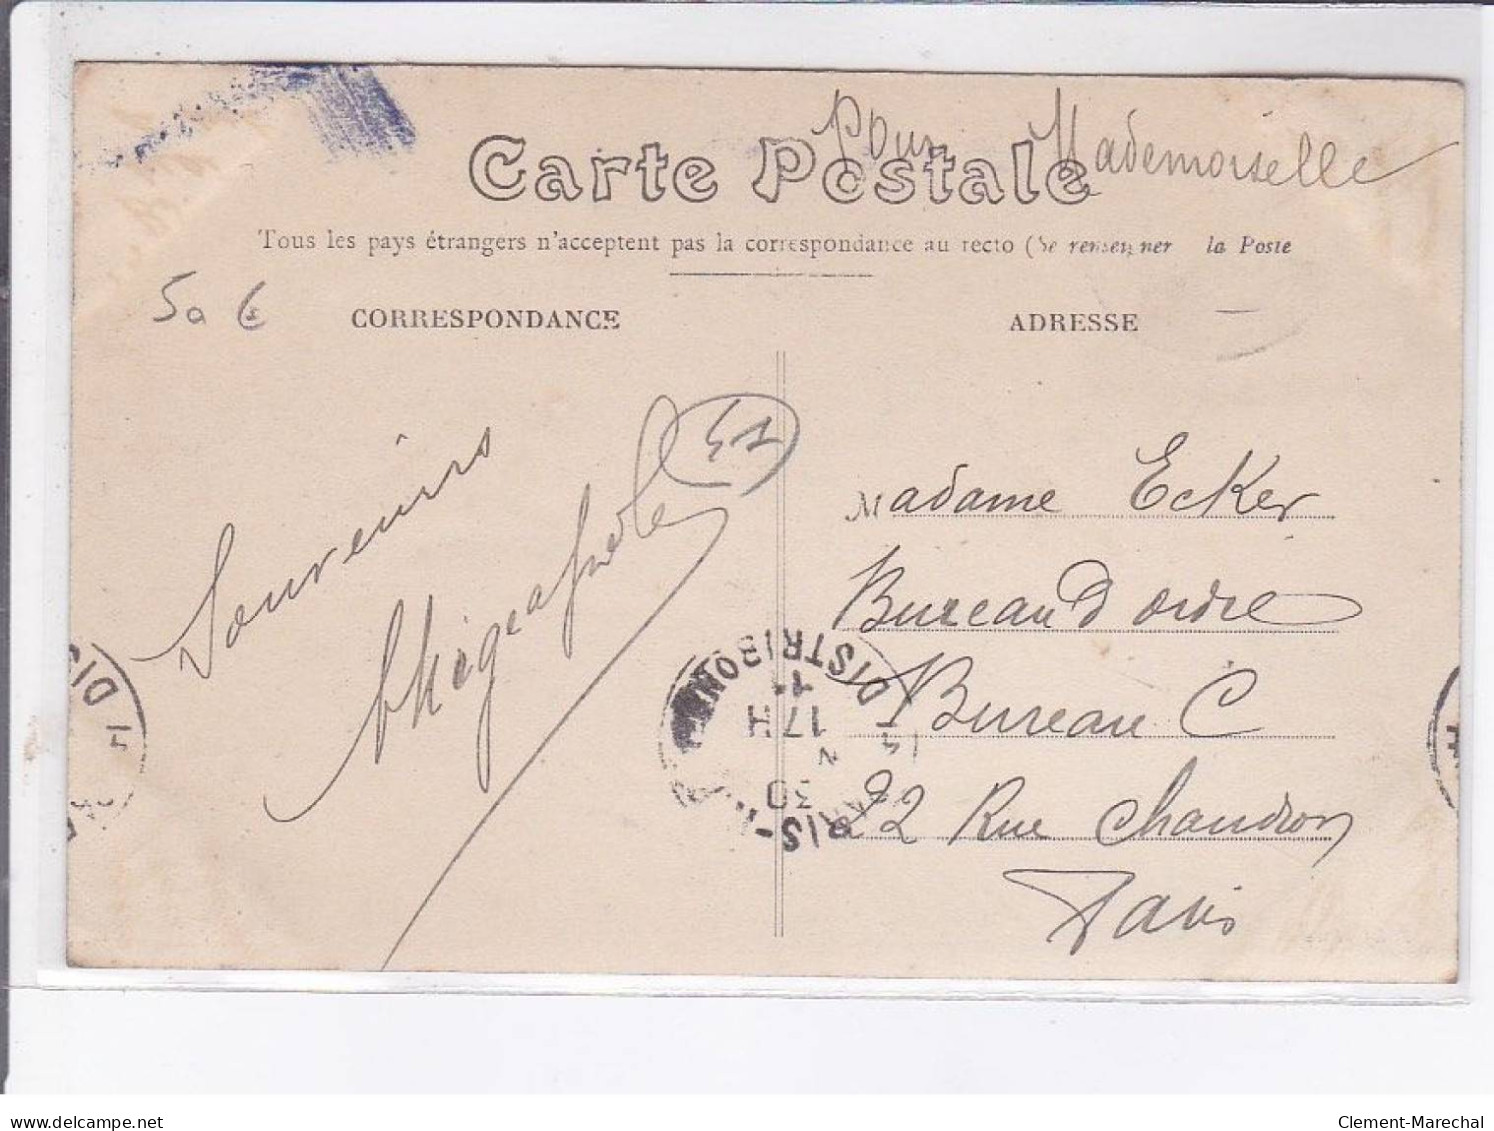 Pour Mademoiselle
Carte Postale
Tous les pays étrangers n'acceptent pas la correspondance au recto (Se renseigner la Poste
CORRESPONDANCE
ADRESSE
Souvenirs
Madame Ecker
Bureau d'ordre
Bureau C
22 Rue Chaudron
Paris
DISTRIBON
17H
30
delcampe.net
Clement-Marechal